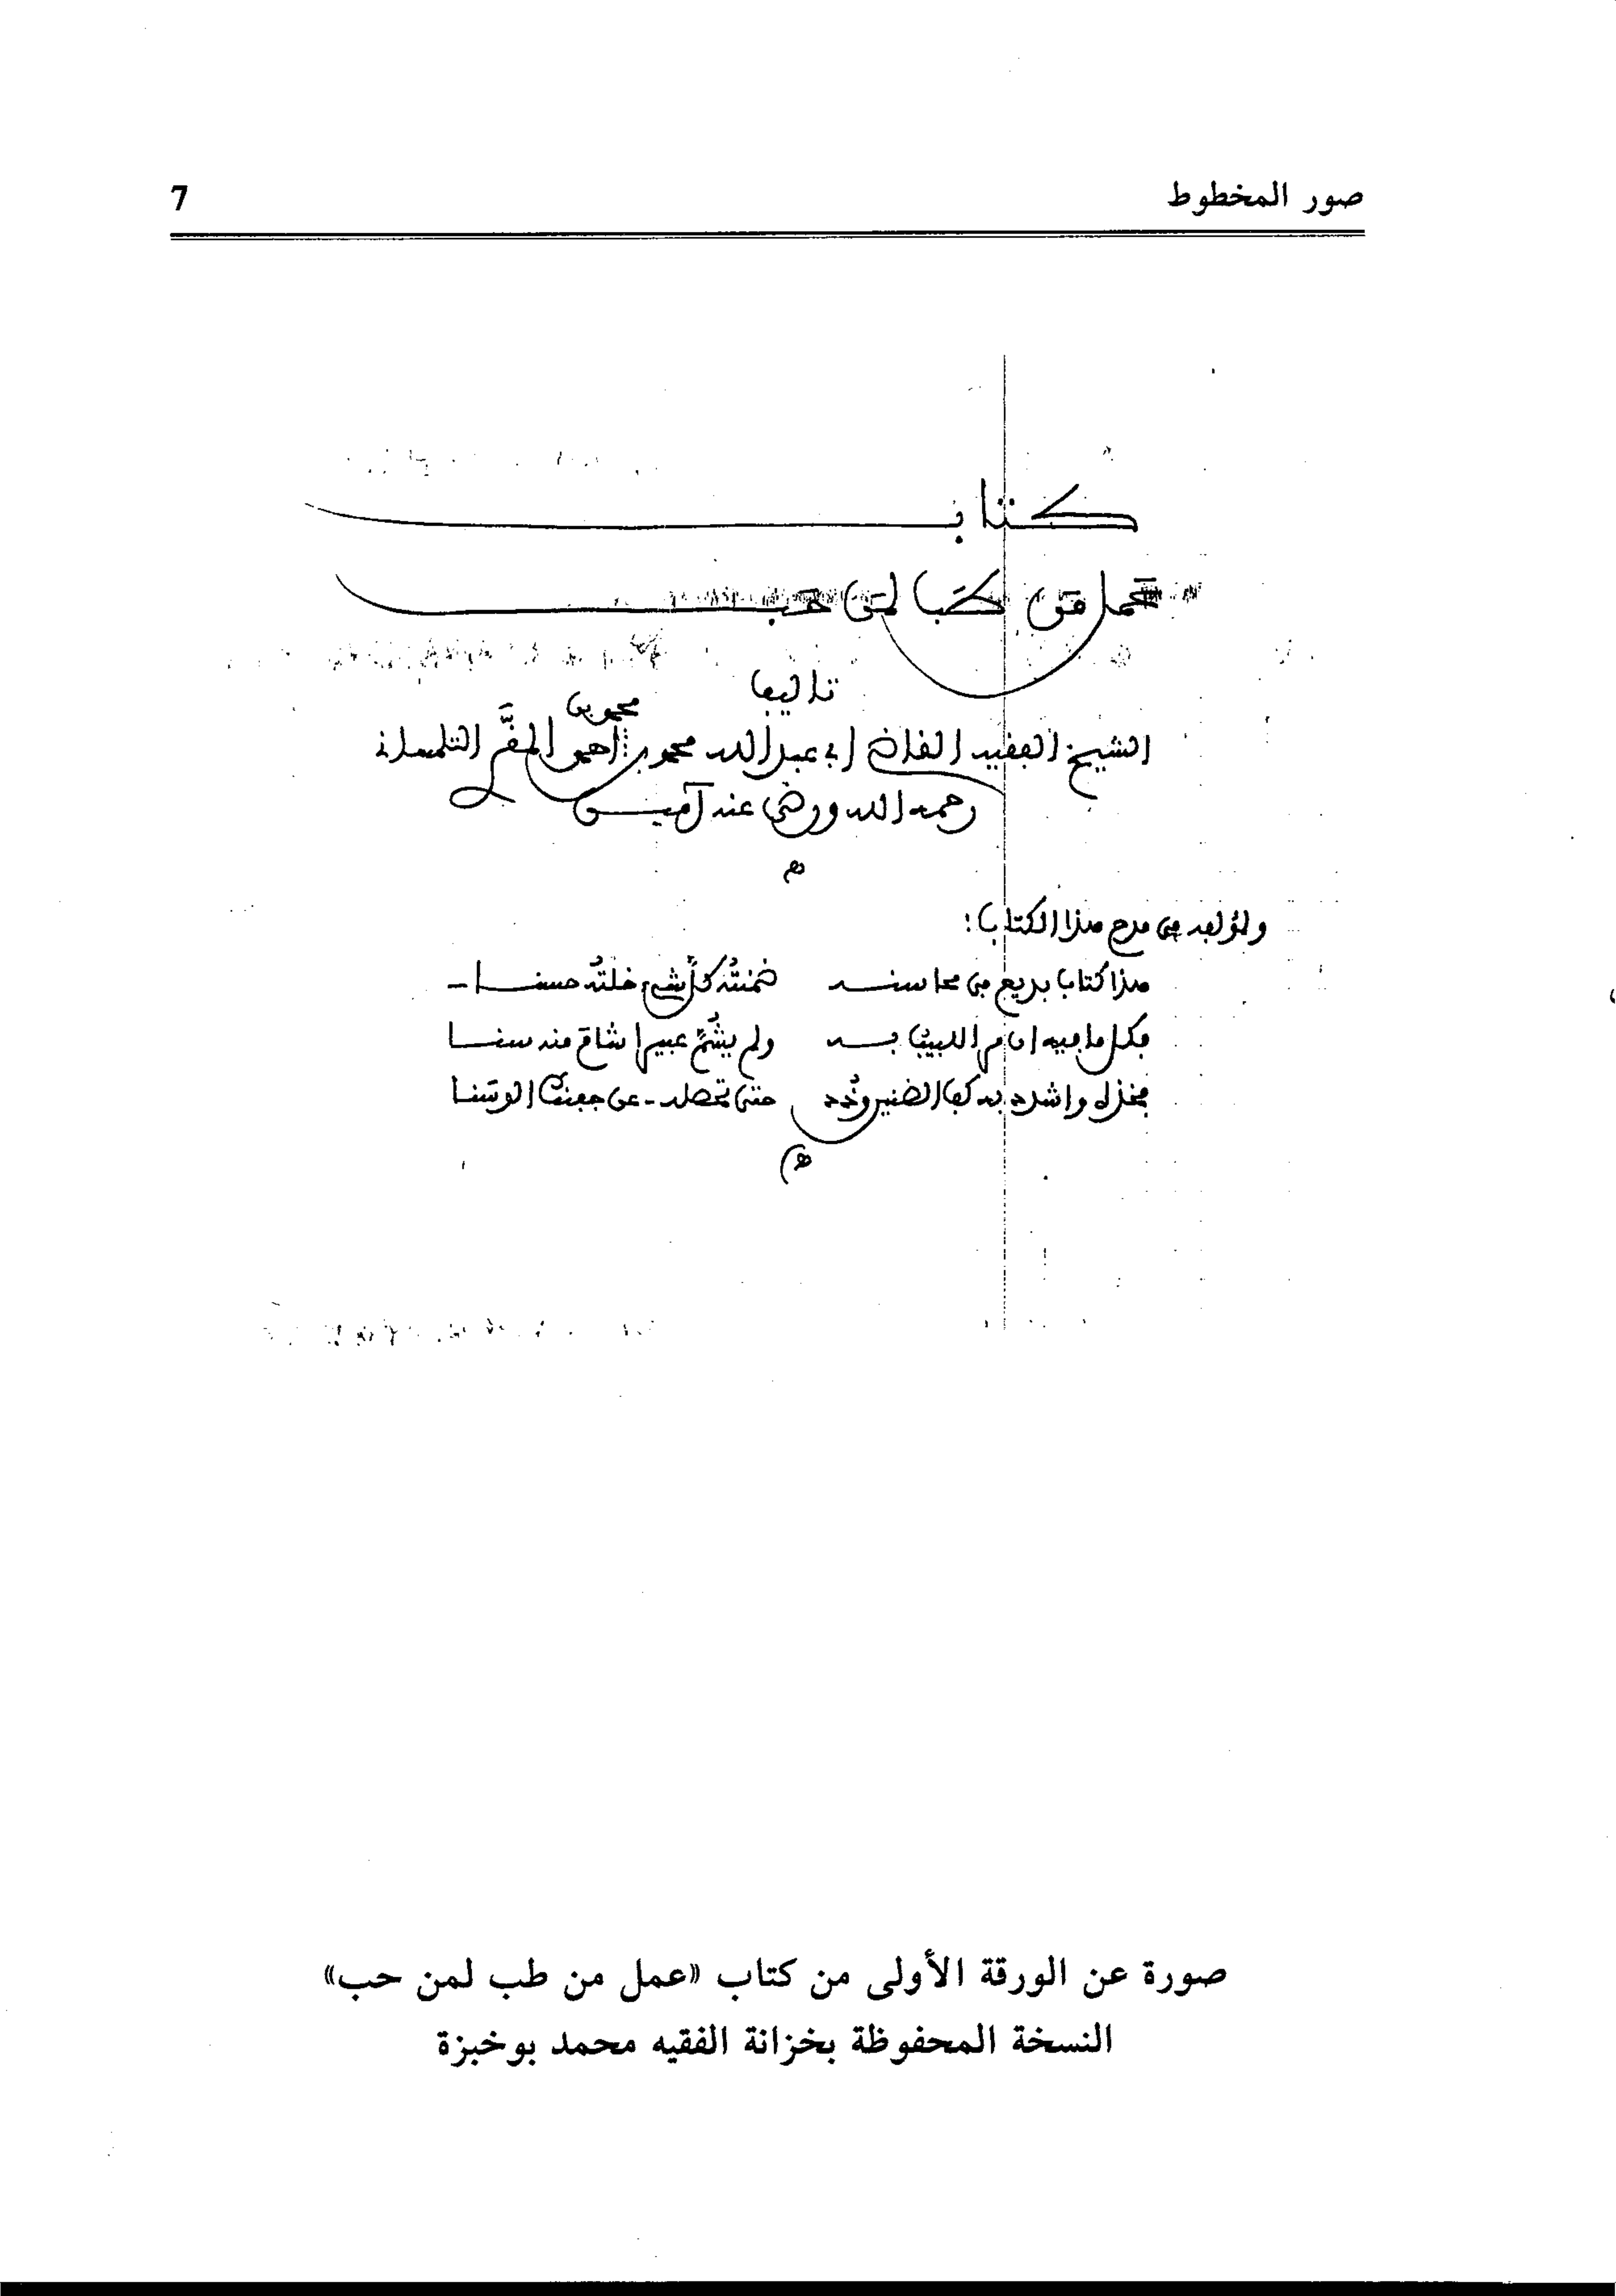 صور المخطوط 7
كتاب
عمل من طب لمن حب
تاليف
محمد بن
الشيخ الفقيه القاضي أبي عبد الله محمد بن أحمد المقَّري التلمساني
رحمه الله ورضي عنه آمين
ه
ولمؤلفه في مدح هذا الكتاب:
هذا كتاب بديع في محاسنه ضمنتُه كلَّ شيء خلتُه حسنا
فكل ما فيه ان مر اللبيب به ولم يشُمَّ عبيرا شام منه سنا
فخذه واشدد به كف الضنين وذُد حتى تحصله عن جفنك الوسَنا
ه
صورة عن الورقة الأولى من كتاب «عمل من طب لمن حب»
النسخة المحفوظة بخزانة الفقيه محمد بوخبزة